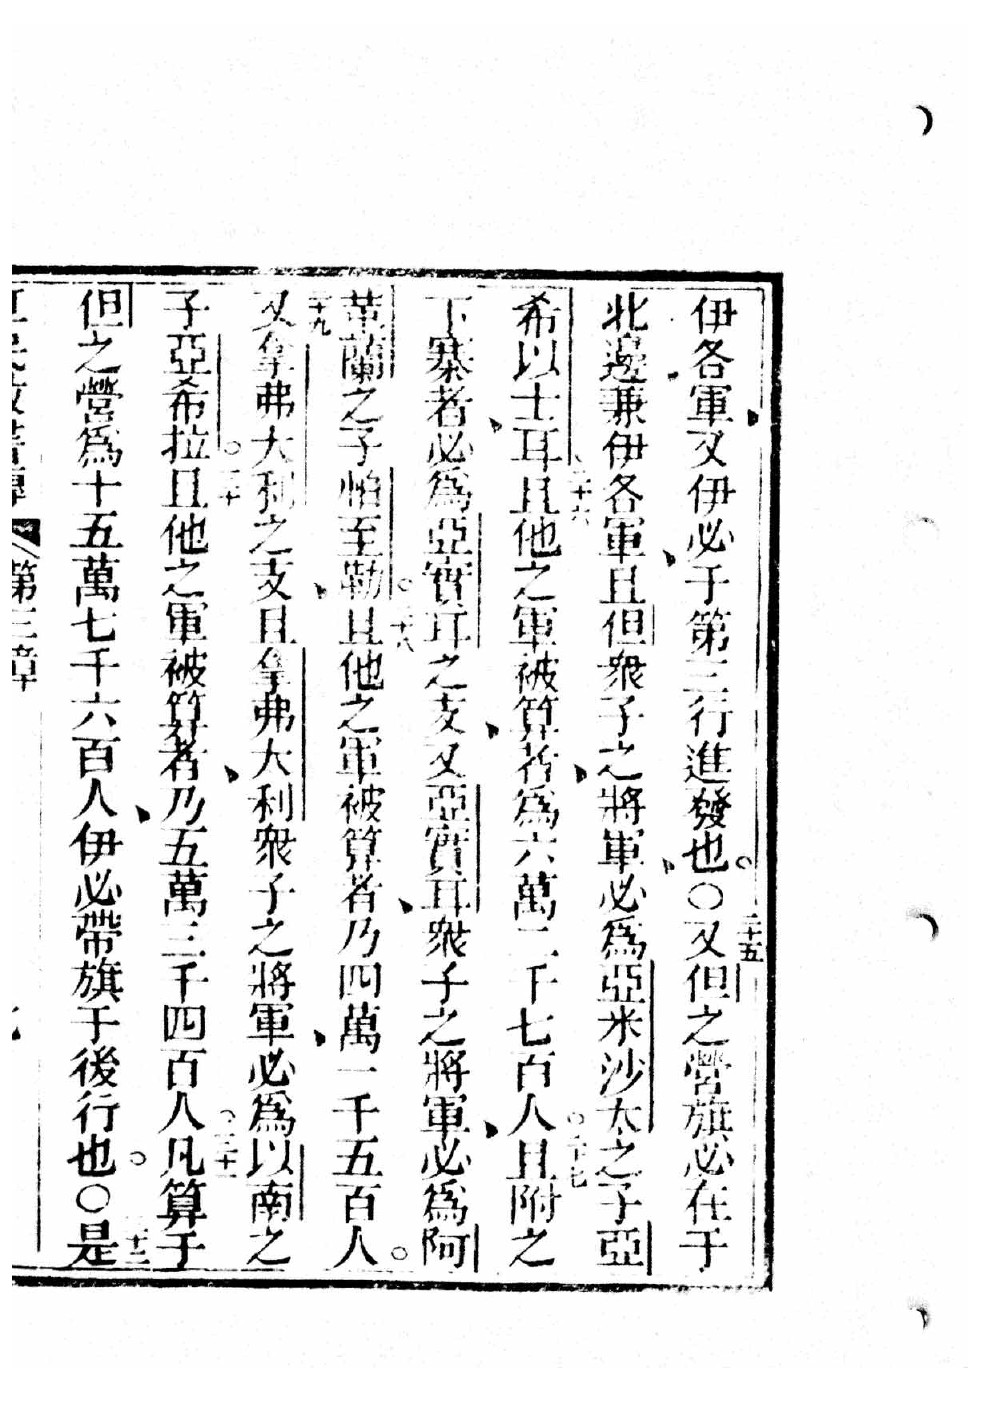 伊各軍又伊必于第三行進發也。〇二十五又但之營旗必在于
北邊兼伊各軍且但衆子之將軍必爲亞米沙太之子亞
希以士耳二十六且他之軍被算者爲六萬二千七百人。二十七且附之
下寨者必爲亞實耳之支又亞實耳衆子之將軍必爲阿
革蘭之子怕至勒。二十八且他之軍被算者乃四萬一千五百人。
二十九又拿弗大利之支且拿弗大利衆子之將軍必爲以南之
子亞希拉。三十且他之軍被算者乃五萬三千四百人。三十一凡算于
但之營爲十五萬七千六百人伊必帶旗于後行也。〇三十二是
第三章